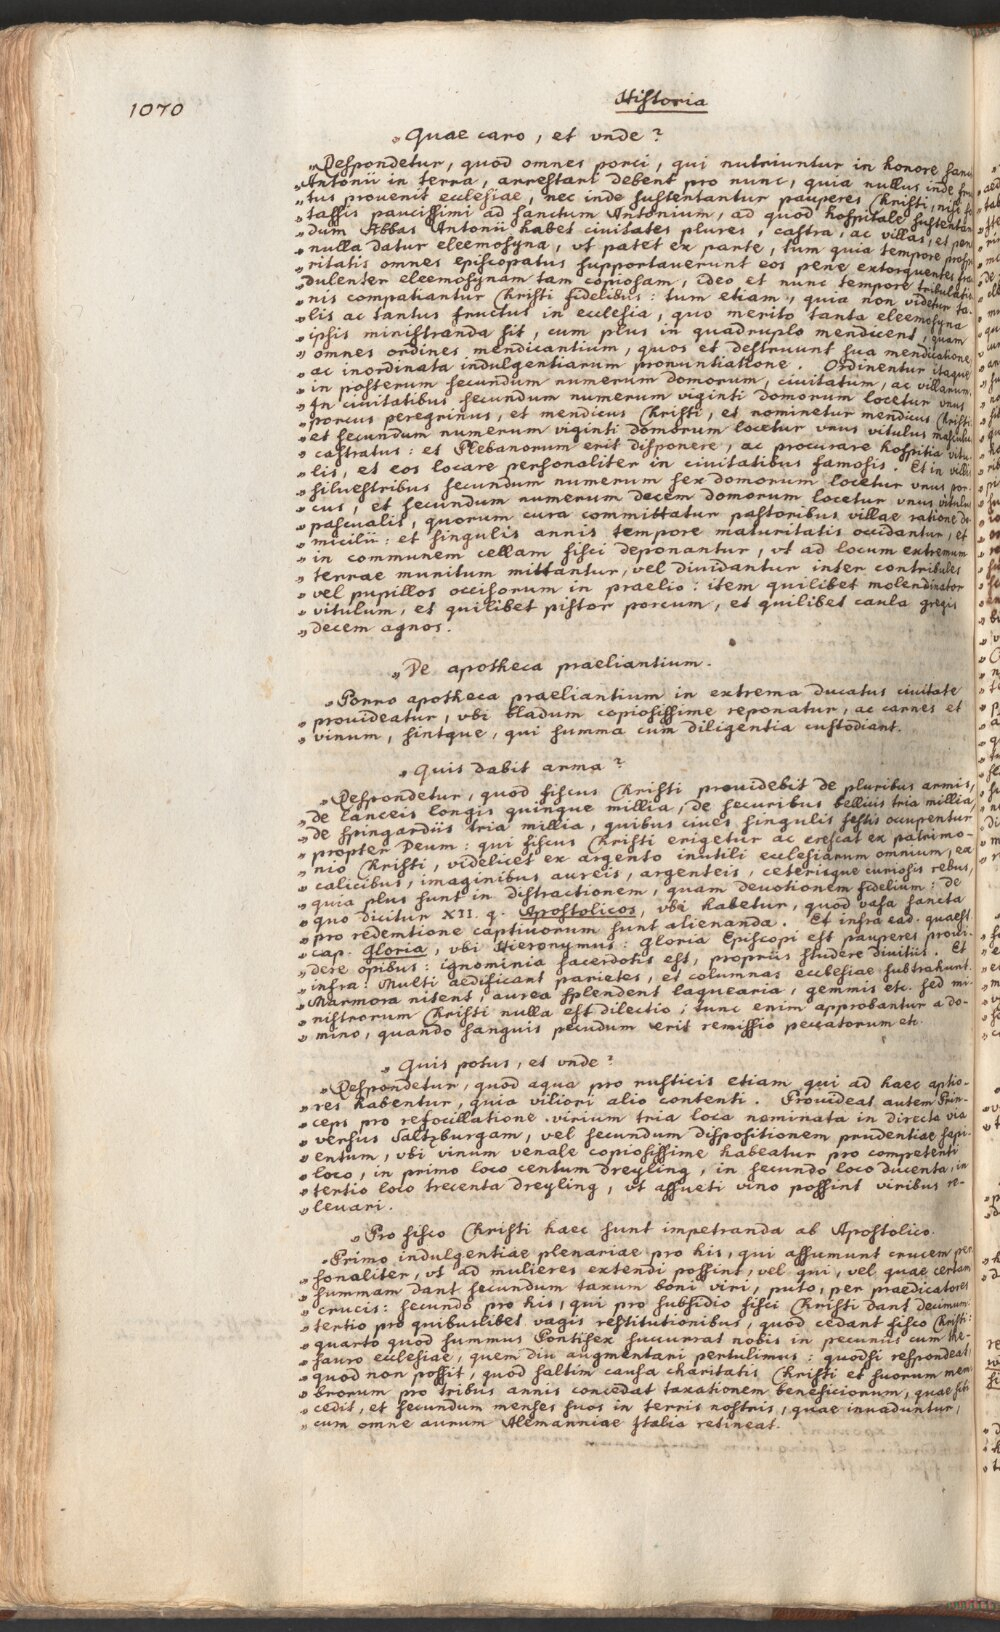 1070
Historia
„Quae caro, et vnde?
„Respondetur, quod omnes porci, qui nutriuntur in honore sanc
„Antonii in terra, arrestari debent pro nunc, quia nullus inde fru
„tus prouenit ecclesiae, nec inde sustentantur pauperes Christi, nisi fo
„tassis paucissimi ad sanctum Antonium, ad quod hospitale sustentan
„dum Abbas Antonii habet ciuitates plures, castra, ac villas, et pen
„nulla datur eleemosyna, vt patet ex parte, tum quia tempore prospe
„ritatis omnes episcopatus supportauerunt eos pene extorquentes fra
„dulenter eleemosynam tam copiosam, ideo et nunc tempore tribulatio
„nis compatiantur Christi fidelibus: tum etiam, quia non videtur ta-
„lis ac tantus fructus in ecclesia, quo merito tanta eleemosyna
„ipsis ministranda sit, cum plus in quadruplo mendicent, quam
„omnes ordines mendicantium, quos et destruunt sua mendicatione
„ac inordinata indulgentiarum pronuntiatione. Ordinentur itaque
„in posterum secundum numerum domorum, ciuitatum, ac villarum.
„In ciuitatibus secundum numerum viginti domorum locetur vnus
„porcus peregrinus, et mendicus Christi, et nominetur mendicus Christi
„et secundum numerum viginti domorum locetur vnus vitulus masculu
„castratus: et Plebanorum erit disponere, ac procurare hospitia vitu
„lis, et eos locare personaliter in ciuitatibus famosis. Et in villis
„siluestribus secundum numerum sex domorum locetur vnus por-
„cus, et secundum numerum decem domorum locetur vnus vitulus
„pascualis, quorum cura committatur pastoribus villae ratione do-
„micilii: et singulis annis tempore maturitatis occidantur, et
„in communem cellam fisci deponantur, vt ad locum extremum
„terrae munitum mittantur, vel diuidantur inter contribules
„vel pupillos occisorum in praelio: item quilibet molendinator
„vitulum, et quilibet pistor porcum, et quilibet caula gregis
„decem agnos.
„De apotheca praeliantium.
„Porro apotheca praeliantium in extrema ducatus ciuitate
„prouideatur, vbi bladum copiosissime reponatur, ac carnes et
„vinum, sintque, qui summa cum diligentia custodiant.
„Quis dabit arma?
„Respondetur, quod fiscus Christi prouidebit de pluribus armis,
„de lanceis longis quinque millia, de securibus bellicis tria millia,
„de spingardiis tria millia, quibus ciues singulis festis occupentur
„propter Deum: qui fiscus Christi erigetur ac crescat ex patrimo-
„nio Christi, videlicet ex argento inutili ecclesiarum omnium, ex
„calicibus, imaginibus aureis, argenteis, ceterisque curiosis rebus,
„quia plus sunt in distractionem, quam deuotionem fidelium: de
„quo dicitur XII. q. Apostolicos, vbi habetur, quod vasa sancta
„pro redemtione captiuorum sunt alienanda. Et infra ead. quaest.
„cap. Gloria, vbi Hieronymus: Gloria Episcopi est pauperes proui-
„dere opibus: ignominia sacerdotis est, propriis studere diuitiis. Et
„infra: Multi aedificant parietes, et columnas ecclesiae subtrahunt.
„Marmora nitent, aurea splendent laquearia, gemmis etc. sed mi-
„nistrorum Christi nulla est dilectio; tunc enim approbantur a do-
„mino, quando sanguis pecudum erit remissio peccatorum etc.
„Quis potus, et vnde?
„Respondetur, quod aqua pro rusticis etiam qui ad haec aptio-
„res habentur, quia viliori alio contenti. Prouideat autem Prin-
„ceps pro refocillatione virium tria loca nominata in directa via
„versus Saltzburgam, vel secundum dispositionem prudentiae sapi-
„entum, vbi vinum venale copiosissime habeatur pro competenti
„loco, in primo loco centum dreyling, in secundo loco ducenta, in
„tertio loco trecenta dreyling, vt assueti vino possint viribus re-
„leuari.
„Pro fisco Christi haec sunt impetranda ab Apostolico.
„Primo indulgentiae plenariae pro his, qui assumunt crucem per
„sonaliter, vt ad mulieres extendi possint, vel qui, vel quae certam
„summam dant secundum taxum boni viri, puto, per praedicatores
„crucis: secundo pro his, qui pro subsidio fisci Christi dant decimum:
„tertio pro quibuslibet vagis restitutionibus, quod cedant fisco Christi:
„quarto quod summus Pontifex succurrat nobis in pecuniis cum the-
„sauro ecclesiae, quem diu augmentari pertulimus: quodsi respondeat
„quod non possit, quod saltim causa charitatis Christi et suorum mem
„brorum pro tribus annis concedat taxationem beneficiorum, quae sibi
„cedit, et secundum menses suos in terris nostris, quae inuaduntur,
„cum omne aurum Alemanniae Italia retineat.